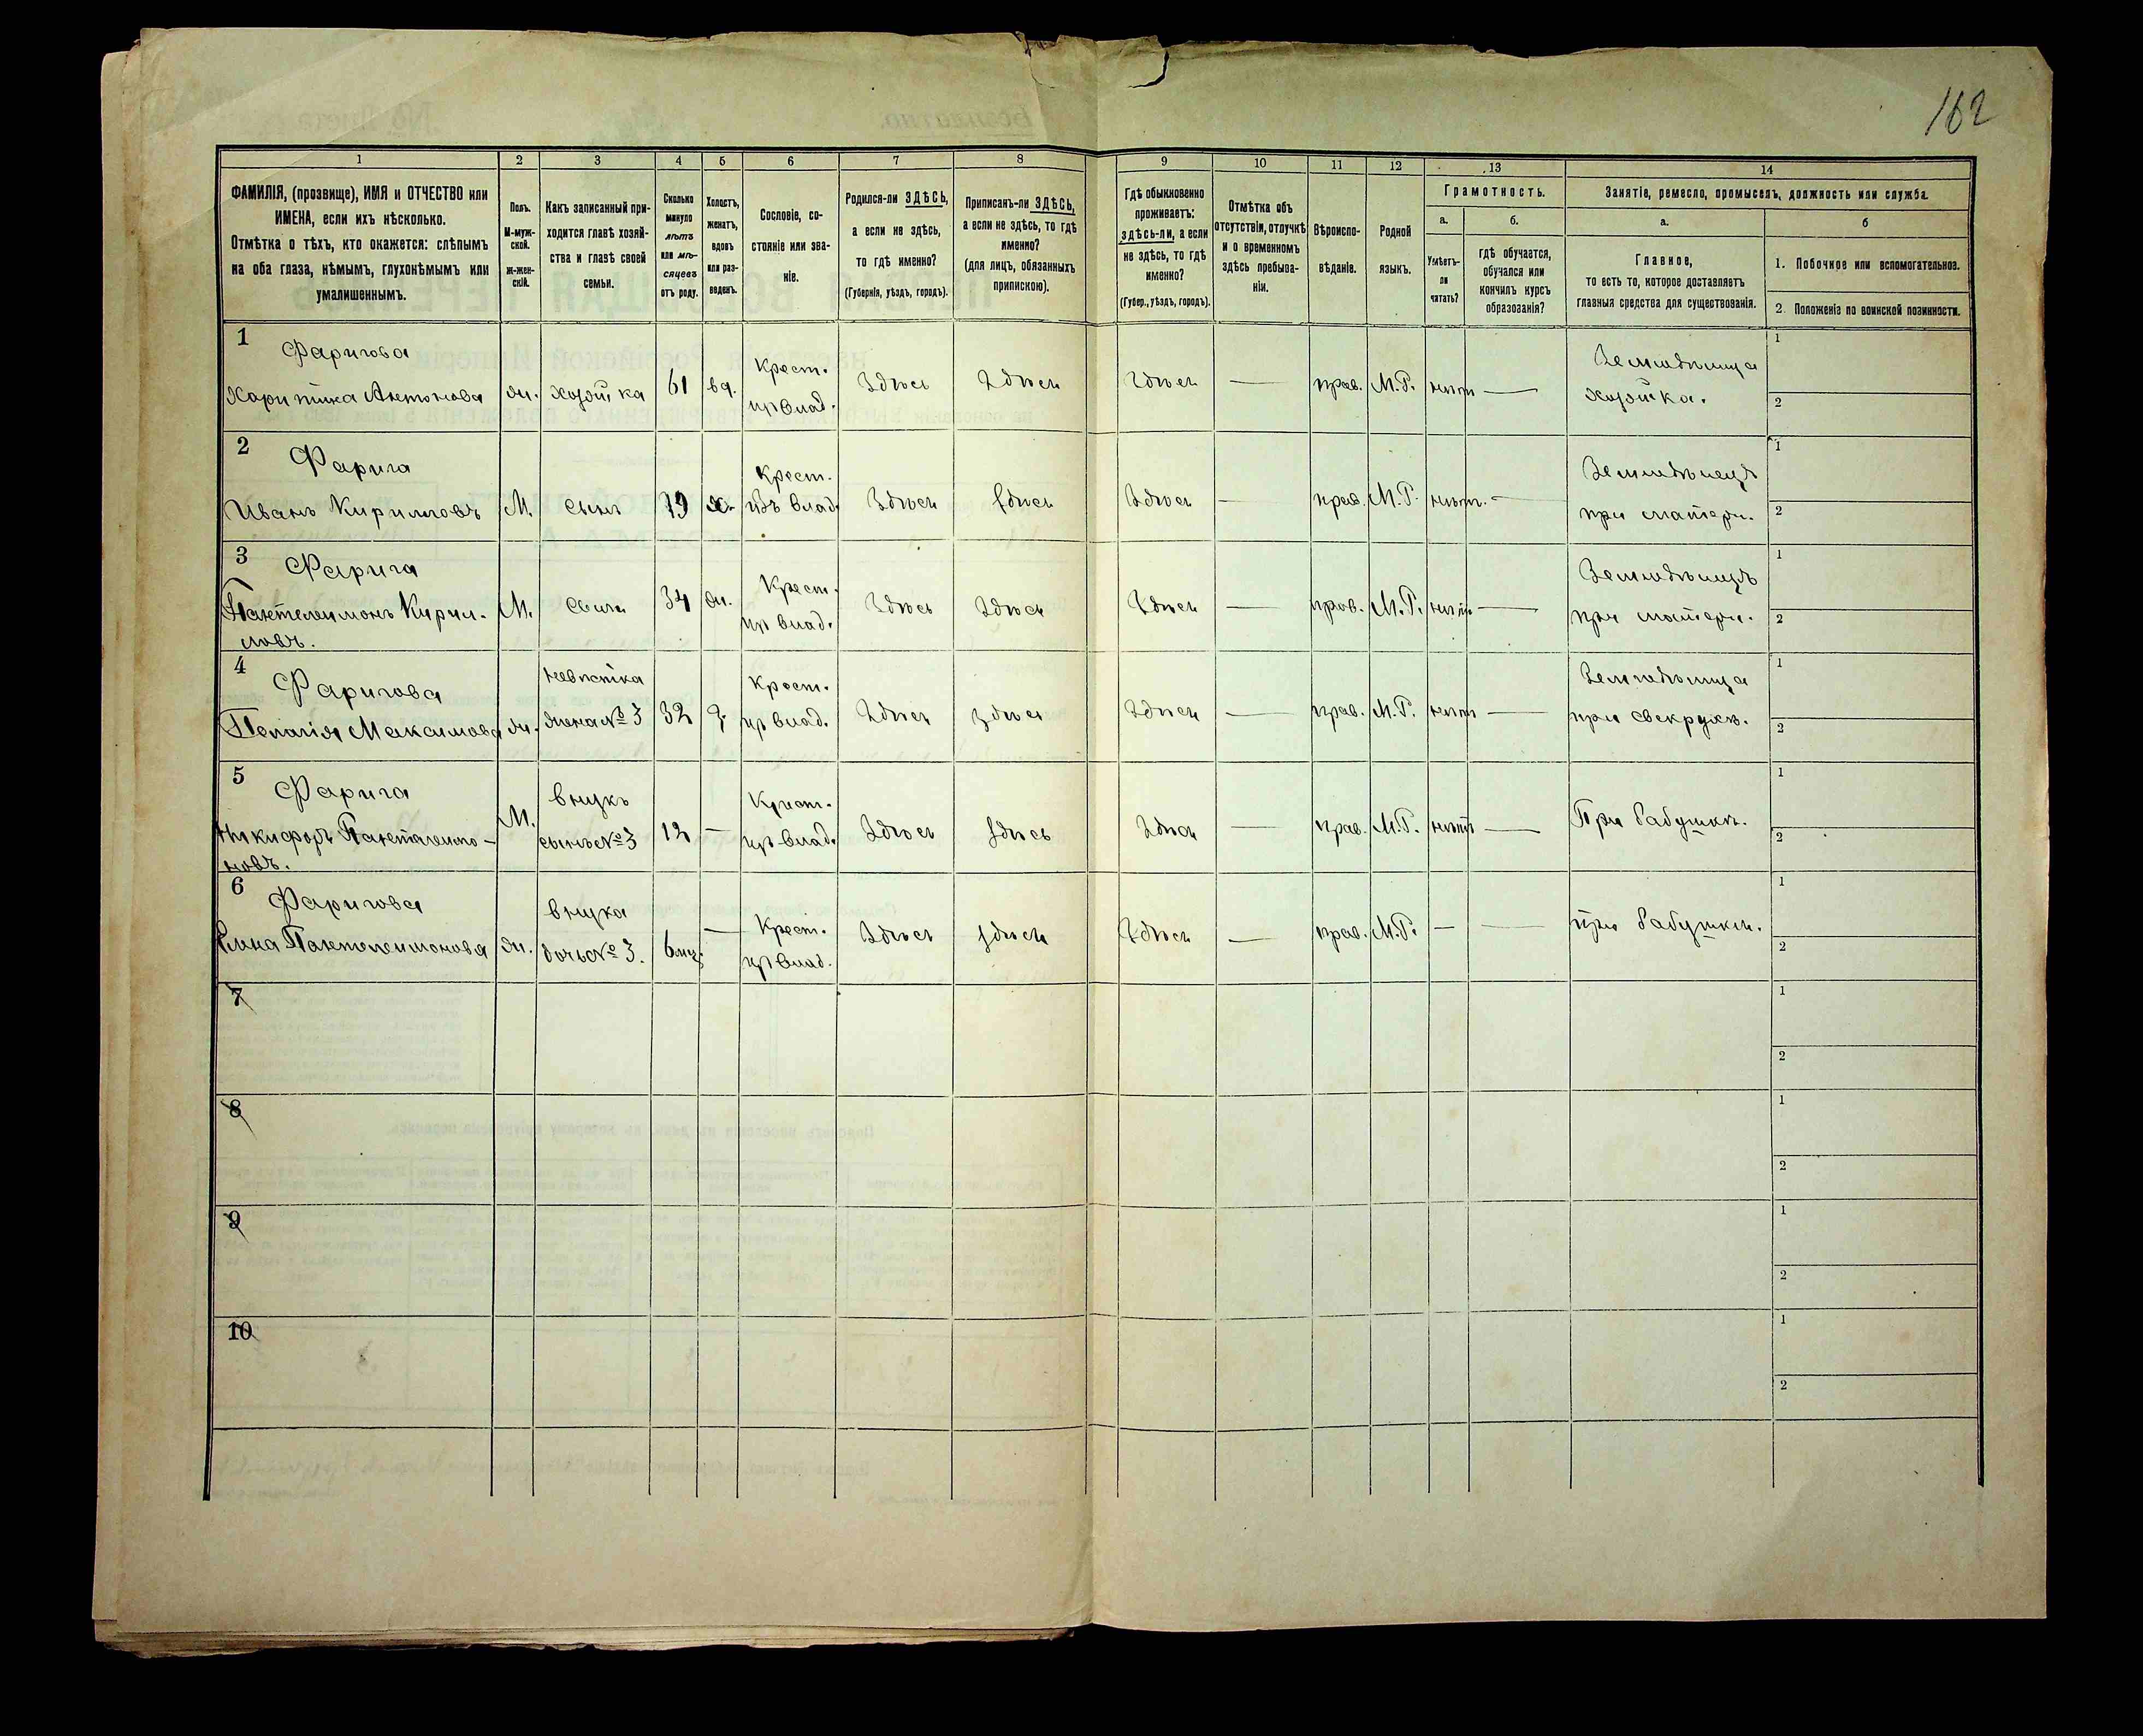 162
1 2 3 4 5 6 7 8 9 10 11 12 13 14
ФАМИЛІЯ, (прозвище), ИМЯ и ОТЧЕСТВО или
ИМЕНА, если ихъ нѣсколько.
Отмѣтка о тѣхъ, кто окажется: слѣпымъ
на оба глаза, нѣмымъ, глухонѣмымъ или
умалишеннымъ.
Полъ.
М-муж-
ской.
ж-жен-
скій.
Какъ записанный при-
ходится главѣ хозяй-
ства и главѣ своей
семьи.
Сколько
минуло
лѣтъ
или мѣ-
сяцевъ
отъ роду.
Холостъ,
женатъ,
вдовъ
или раз-
веденъ.
Сословіе, со-
стояніе или зва-
ніе.
Родился-ли ЗДѢСЬ,
а если не здѣсь,
то гдѣ именно?
(Губернія, уѣздъ, городъ).
Приписанъ-ли ЗДѢСЬ,
а если не здѣсь, то гдѣ
именно?
(для лицъ, обязанныхъ
припискою).
Гдѣ обыкновенно
проживаетъ:
здѣсь-ли, а если
не здѣсь, то гдѣ
именно?
(Губер., уѣздъ, городъ).
Отмѣтка объ
отсутствіи, отлучкѣ
и о временномъ
здѣсь пребыва-
ніи.
Вѣроиспо-
вѣданіе.
Родной
языкъ.
Грамотность.
а.
Умѣетъ-
ли
читать?
б.
гдѣ обучается,
обучался или
кончилъ курсъ
образованія?
Занятіе, ремесло, промыселъ, должность или служба.
а.
Главное,
то есть то, которое доставляетъ
главныя средства для существованія.
б
1. Побочное или вспомогательное.
2. Положеніе по воинской повинности.
1 Фаригова
Харитина Антонова
ж. хозяйка 61 вд.
Крест.
из влад.
Здѣсь Здѣсь Здѣсь — прав. М.Р. нѣтъ —
Земледѣлица
хозяйка.
1
2
2 Фарига
Иванъ Кириловъ
М. сынъ 19 х.
Крест.
изъ влад.
Здѣсь Здѣсь Здѣсь — прав. М.Р. нѣтъ. —
Земледѣлецъ
при матери.
1
2
3 Фарига
Пантелеимонъ Кирил-
ловъ.
М. сынъ 34 ж.
Крест.
из влад.
Здѣсь Здѣсь Здѣсь — прав. М.Р. нѣтъ —
Земледѣлецъ
при матери.
1
2
4 Фаригова
Пелагія Максимова
ж.
невѣстка
жена № 3
32 з.
Крест.
из влад.
Здѣсь Здѣсь Здѣсь — прав. М.Р. нѣтъ —
Земледѣлица
при свекрухѣ.
1
2
5 Фарига
Никифоръ Пантелеимо-
новъ.
М.
внукъ
сынъ № 3
12 —
Крест.
из влад.
Здѣсь Здѣсь Здѣсь — прав. М.Р. нѣтъ —
При бабушкѣ.
1
2
6 Фаригова
Елена Пантелеимонова
ж.
внука
дочь № 3.
6 мц. —
Крест.
из влад.
Здѣсь Здѣсь Здѣсь — прав. М.Р. — —
при бабушкѣ.
1
2
7
1
2
8
1
2
9
1
2
10
1
2